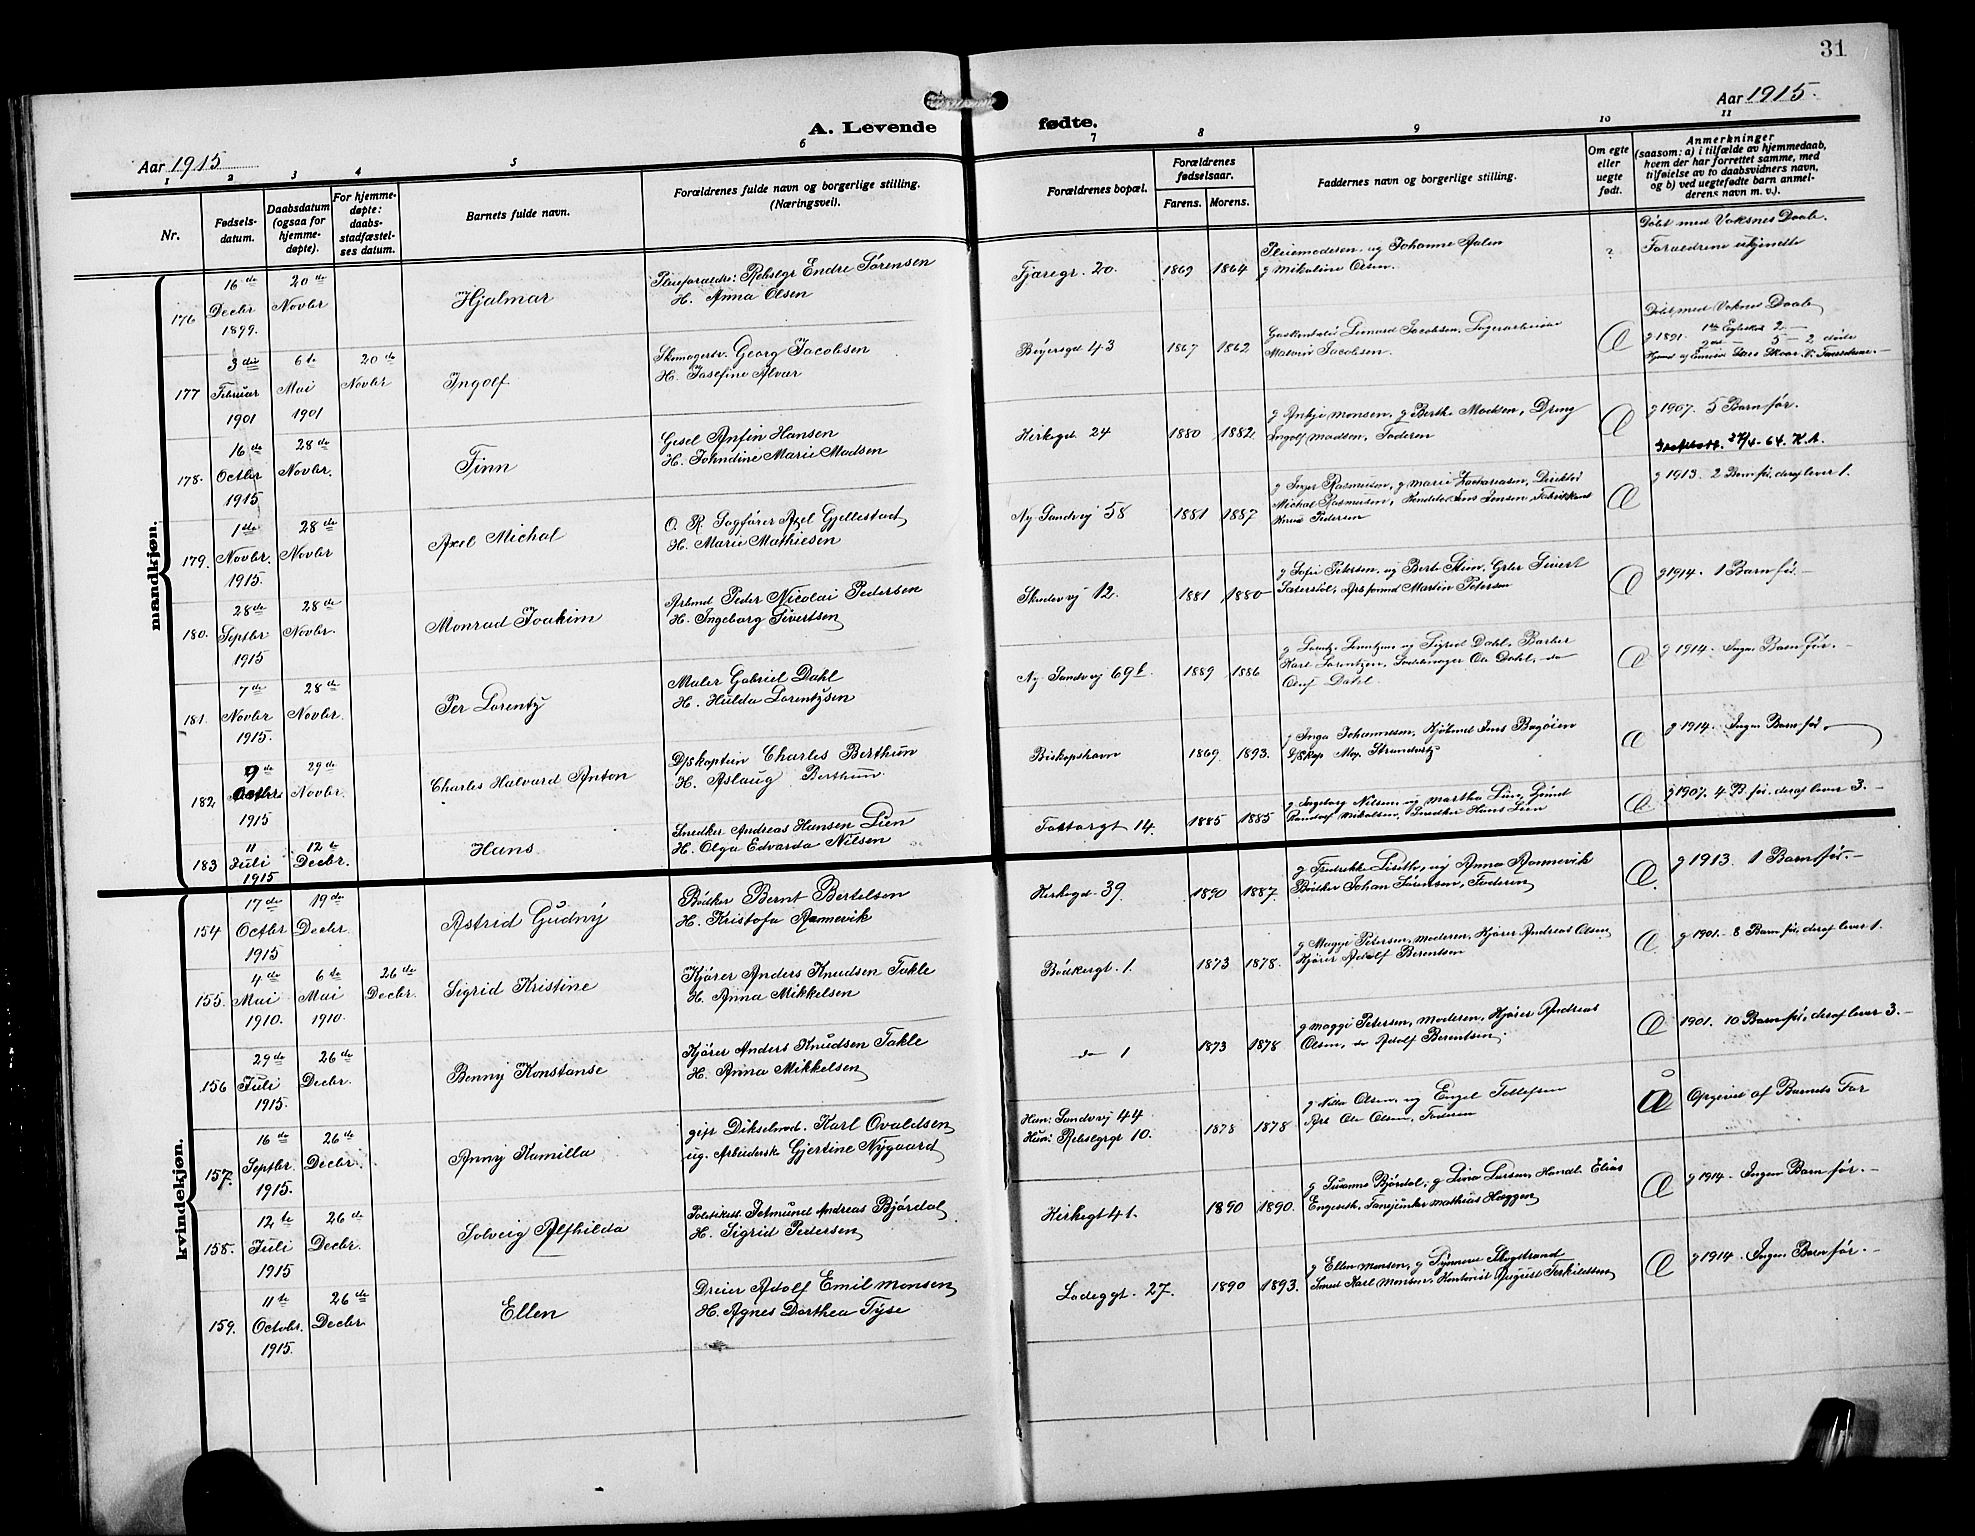 31
Aar 1915.
Aar 1915
A. Levende fødte.
1 2 3 4 5 6 7 8 9 10 11
Nr.
Fødsels-
datum.
Daabsdatum
(ogsaa for
hjemme-
døpte).
For hjemme-
døpte:
daabs-
stadfæstel-
ses datum.
Barnets fulde navn.
Forældrenes fulde navn og borgerlige stilling.
(Næringsvei).
Forældrenes bopæl.
Forældrenes
fødselsaar.
Farens. Morens.
Faddernes navn og borgerlige stilling.
Om egte
eller
uegte
født.
Anmerkninger
(saasom: a) i tilfælde av hjemmedaab,
hvem der har forrettet samme, med
tilføielse av to daabsvidners navn,
og b) ved uegtefødte barn anmel-
derens navn m. v.).
mandkjøn.
176 16de Decbr 1899. 20de Novbr Hjalmar
Pleieforældre: Rebslgr Endre Sørensen
H. Anna Olsen
Tjæregr. 20. 1869 1864
Pleiemoderen, ug Johanne Aalen
g Mikaline Olsen.
?
Døbt med Voksnes Daab.
Forældrene ukjendte
177 3die Februar 1901 6te Mai 1901 20de Novbr Ingolf
Skomagersv. Georg Jacobsen
H. Josefine Alvær
Beyersgd 43 1867 1862
Leonard Jacobsen, Lagerarbeider
Jacobsen.
Æ
Døbt med Voksnes Daab
g 1891.
178. 16de Octbr 1915 28de Novbr. Finn
Gesel Anfin Hansen
H. Johndine Marie Madsen
Kirkegd. 24 1880 1882.
g Antje Monsen, g Berthe Madsen, Dreng
Ingolf Madsen, Faderen
Æ
g 1907. 5 Barn før.
179. 1ste Novbr. 1915. 28de Novbr Axel Michal
O. R. Sagfører Axel Gjellestad
H. Marie Mathiesen
Ny Sandvj 58 1881 1887
g Inger Rasmussen, g Marie Zachariassen, Direktør
Michal Rasmussen, Jens Jensen Fabrikant
Pedersen
Æ
g 1913. 2 Barn før, deraf lever 1.
180. 28de Septbr 1915 28de Novbr. Monrad Joakim
Arbmd Peder Nicolai Pedersen
H. Ingeborg Sivertsen
Skudevj 12. 1881 1880
g Sofie Petersen, ug Berte Stien, Sivert
Martin Petersen
Æ
g 1914. 1 Barn før.
181. 7de Novbr 1915. 28de Novbr. Per Lorentz
Maler Gabriel Dahl
H. Hulda Lorentzsen
Ny Sandvj 69b. 1889 1886
g Lorentzen ug Sigrid Dahl, Barber
Karl Lorentzen, Ole Dahl, do
Oluf Dahl.
Æ
g 1914. Ingen Barn før.
182 9de Octbr 1915 29de Novbr. Charles Halvard Anton
D/skaptein Charles Berthun
H. Aslaug Berthun.
Biskopshavn 1869 1893.
g Inga Johannesen, Kjøbmd Jens Bagøien
Strandvitz
Æ
g 1914. Ingen Barn før.
183 11 Juli 1915 12te Decbr. Hans
Snedker Andreas Hansen Lien
H. Olga Edvarda Nilsen
Torvet 14. 1885 1885
g Ingeborg Nilsen, ug Martha Lien, Gjmd
Nikolsen, Snedker Hans Lien
Æ
g 1907. 4 B. før. deraf lever 3.
kvindekjøn.
154 17de Octbr 1915 19de Decbr. Astrid Gudny
Bødker Bernt Bertelsen
H. Kristofa Rannevik
Kirkegd 39. 1890 1887.
g Fredrikke Liseth, ug Anna Rannevik
Bødker Johan Sørensen, Faderen
Æ.
g 1913. 1 Barn før.
155. 4de Mai 1910. 6te Mai 1910. 26de Decbr. Sigrid Kristine
Kjører Anders Knudsen Takle
H. Anna Mikkelsen
Bødkergt. 1. 1873 1878.
g Maggi Petersen, Moderen, Kjører Andreas Olsen,
Kjører Adolf Berentsen
Æ
g 1901. 8 Barn før, deraf lever 1.
156 29de Juli 1915. 26de Decbr. Benny Konstanse
Kjører Anders Knudsen Takle
H. Anna Mikkelsen
do 1 1873 1878
g Maggi Petersen, Moderen, Kjører Andreas
Olsen, do Adolf Berentsen.
Æ
1901. 10 Barn før, deraf lever 3.
157. 16de Septbr 1915. 26de Decbr. Anny Kamilla
gift Dikselmd. Karl Ovaldsen
ug. Arbeidersk Gjertine Nygaard
Han: Sandvj 44
Hun: Rebslgrgt 10. 1878 1878
g Nilla Olsen, ug Engel Tollefsen
Arb Ole Olsen, Faderen
U
Opgivet af Barnets Far
158. 12te Juli 1915 26de Decbr. Solveig Alfhilda
Politikst. Jetmund Andreas Bjørdal
H. Sigrid Pedersen
Kirkegt 41. 1890 1890.
g Susanna Bjørdal, g Lina Larsen, Handl. Elias
Engeseth, Mathias Haggen
Æ
g 1914. Ingen Barn før.
159. 11te Octobr. 1915. 26de Decbr. Ellen
Dreier Adolf Emil Monsen
H. Agnes Dorthea Tyse
Ladeggt. 27. 1890 1893.
g Ellen Monsen, g Synneve Skogstrand
Smed Karl Monsen, Kontorist August Terkildsen
Æ
g 1914. Ingen Barn før.